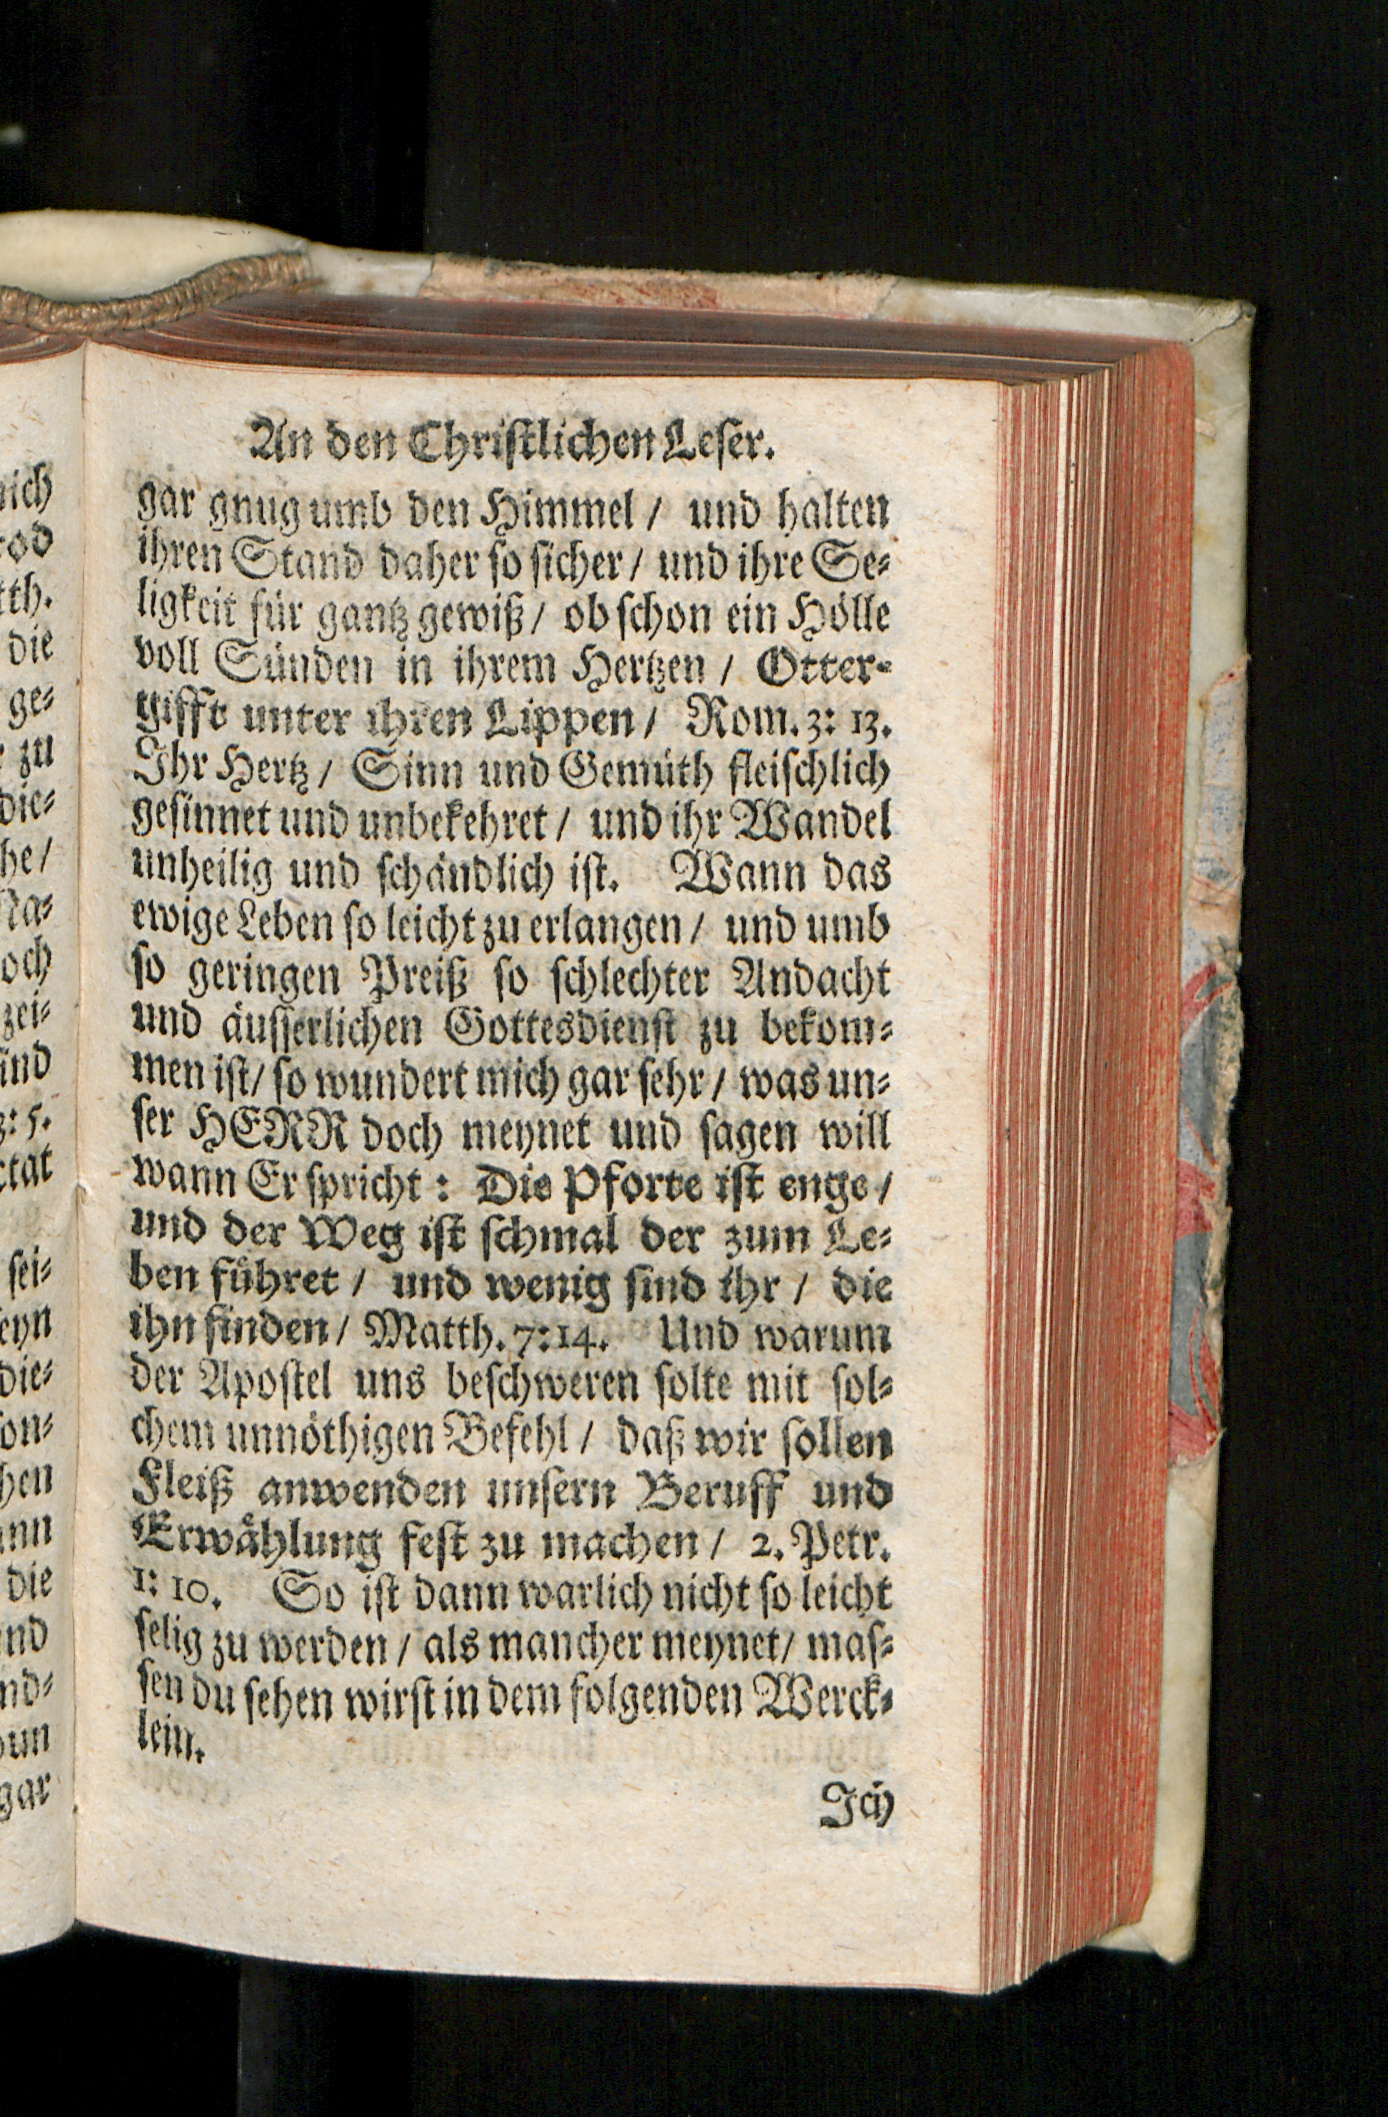 An den Christlichen Leser.
gar gnug umb den Himmel / und halten
ihren Stand daher so sicher / und ihre Se-
ligkeit für gantz gewiß / ob schon ein Hölle
voll Sünden in ihrem Hertzen / Otter-
gifft unter ihren Lippen / Rom. 3: 13.
Ihr Hertz / Sinn und Gemüth fleischlich
gesinnet und unbekehret / und ihr Wandel
unheilig und schändlich ist. Wann das
ewige Leben so leicht zu erlangen / und umb
so geringen Preiß so schlechter Andacht
und äusserlichen Gottesdienst zu bekom-
men ist / so wundert mich gar sehr / was un-
ser HERR doch meynet und sagen will
wann Er spricht: Die Pforte ist enge /
und der Weg ist schmal der zum Le-
ben führet / und wenig sind ihr / die
ihn finden / Matth. 7:14. Und warum
der Apostel uns beschweren solte mit sol-
chem unnöthigen Befehl / daß wir sollen
Fleiß anwenden unsern Beruff und
Erwählung fest zu machen / 2. Petr.
1: 10. So ist dann warlich nicht so leicht
selig zu werden / als mancher meynet / mas-
sen du sehen wirst in dem folgenden Werck-
lein.
Ich